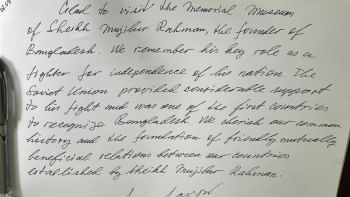 Glad to visit the Memorial Museum
of Sheikh Mujibur Rahman, the founder of
Bongladesh. We remember his key role as a
fighter for independence of his nation. The
Soviet Union provided considerable support
to his fight and was one of the first countries
to recognize Bongladesh. We cherish our common
history and the foundation of friendly mutually
beneficial relations between our countries
established by Sheikh Mujibur Rahman.